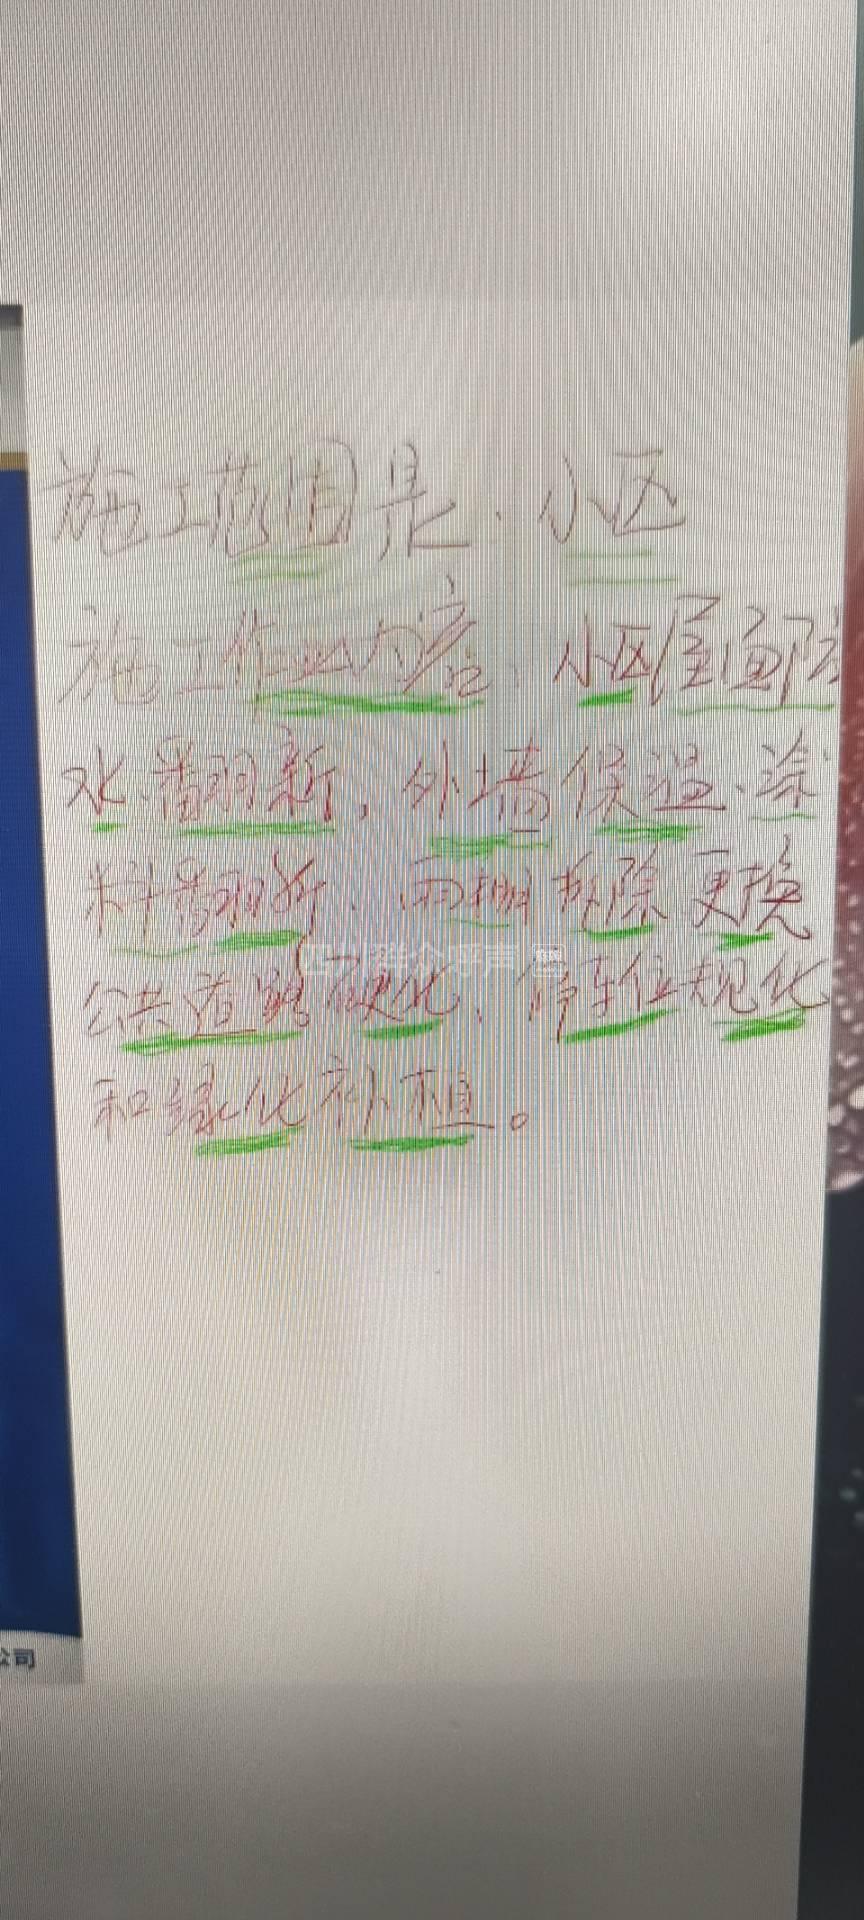 施工范围是、小区
施工作业内容、小区屋面防
水、翻新、外墙保温、涂
料翻新、雨棚拆除更换
四川群众呼声
公共道路硬化、停车位规化
和绿化补植。
公司